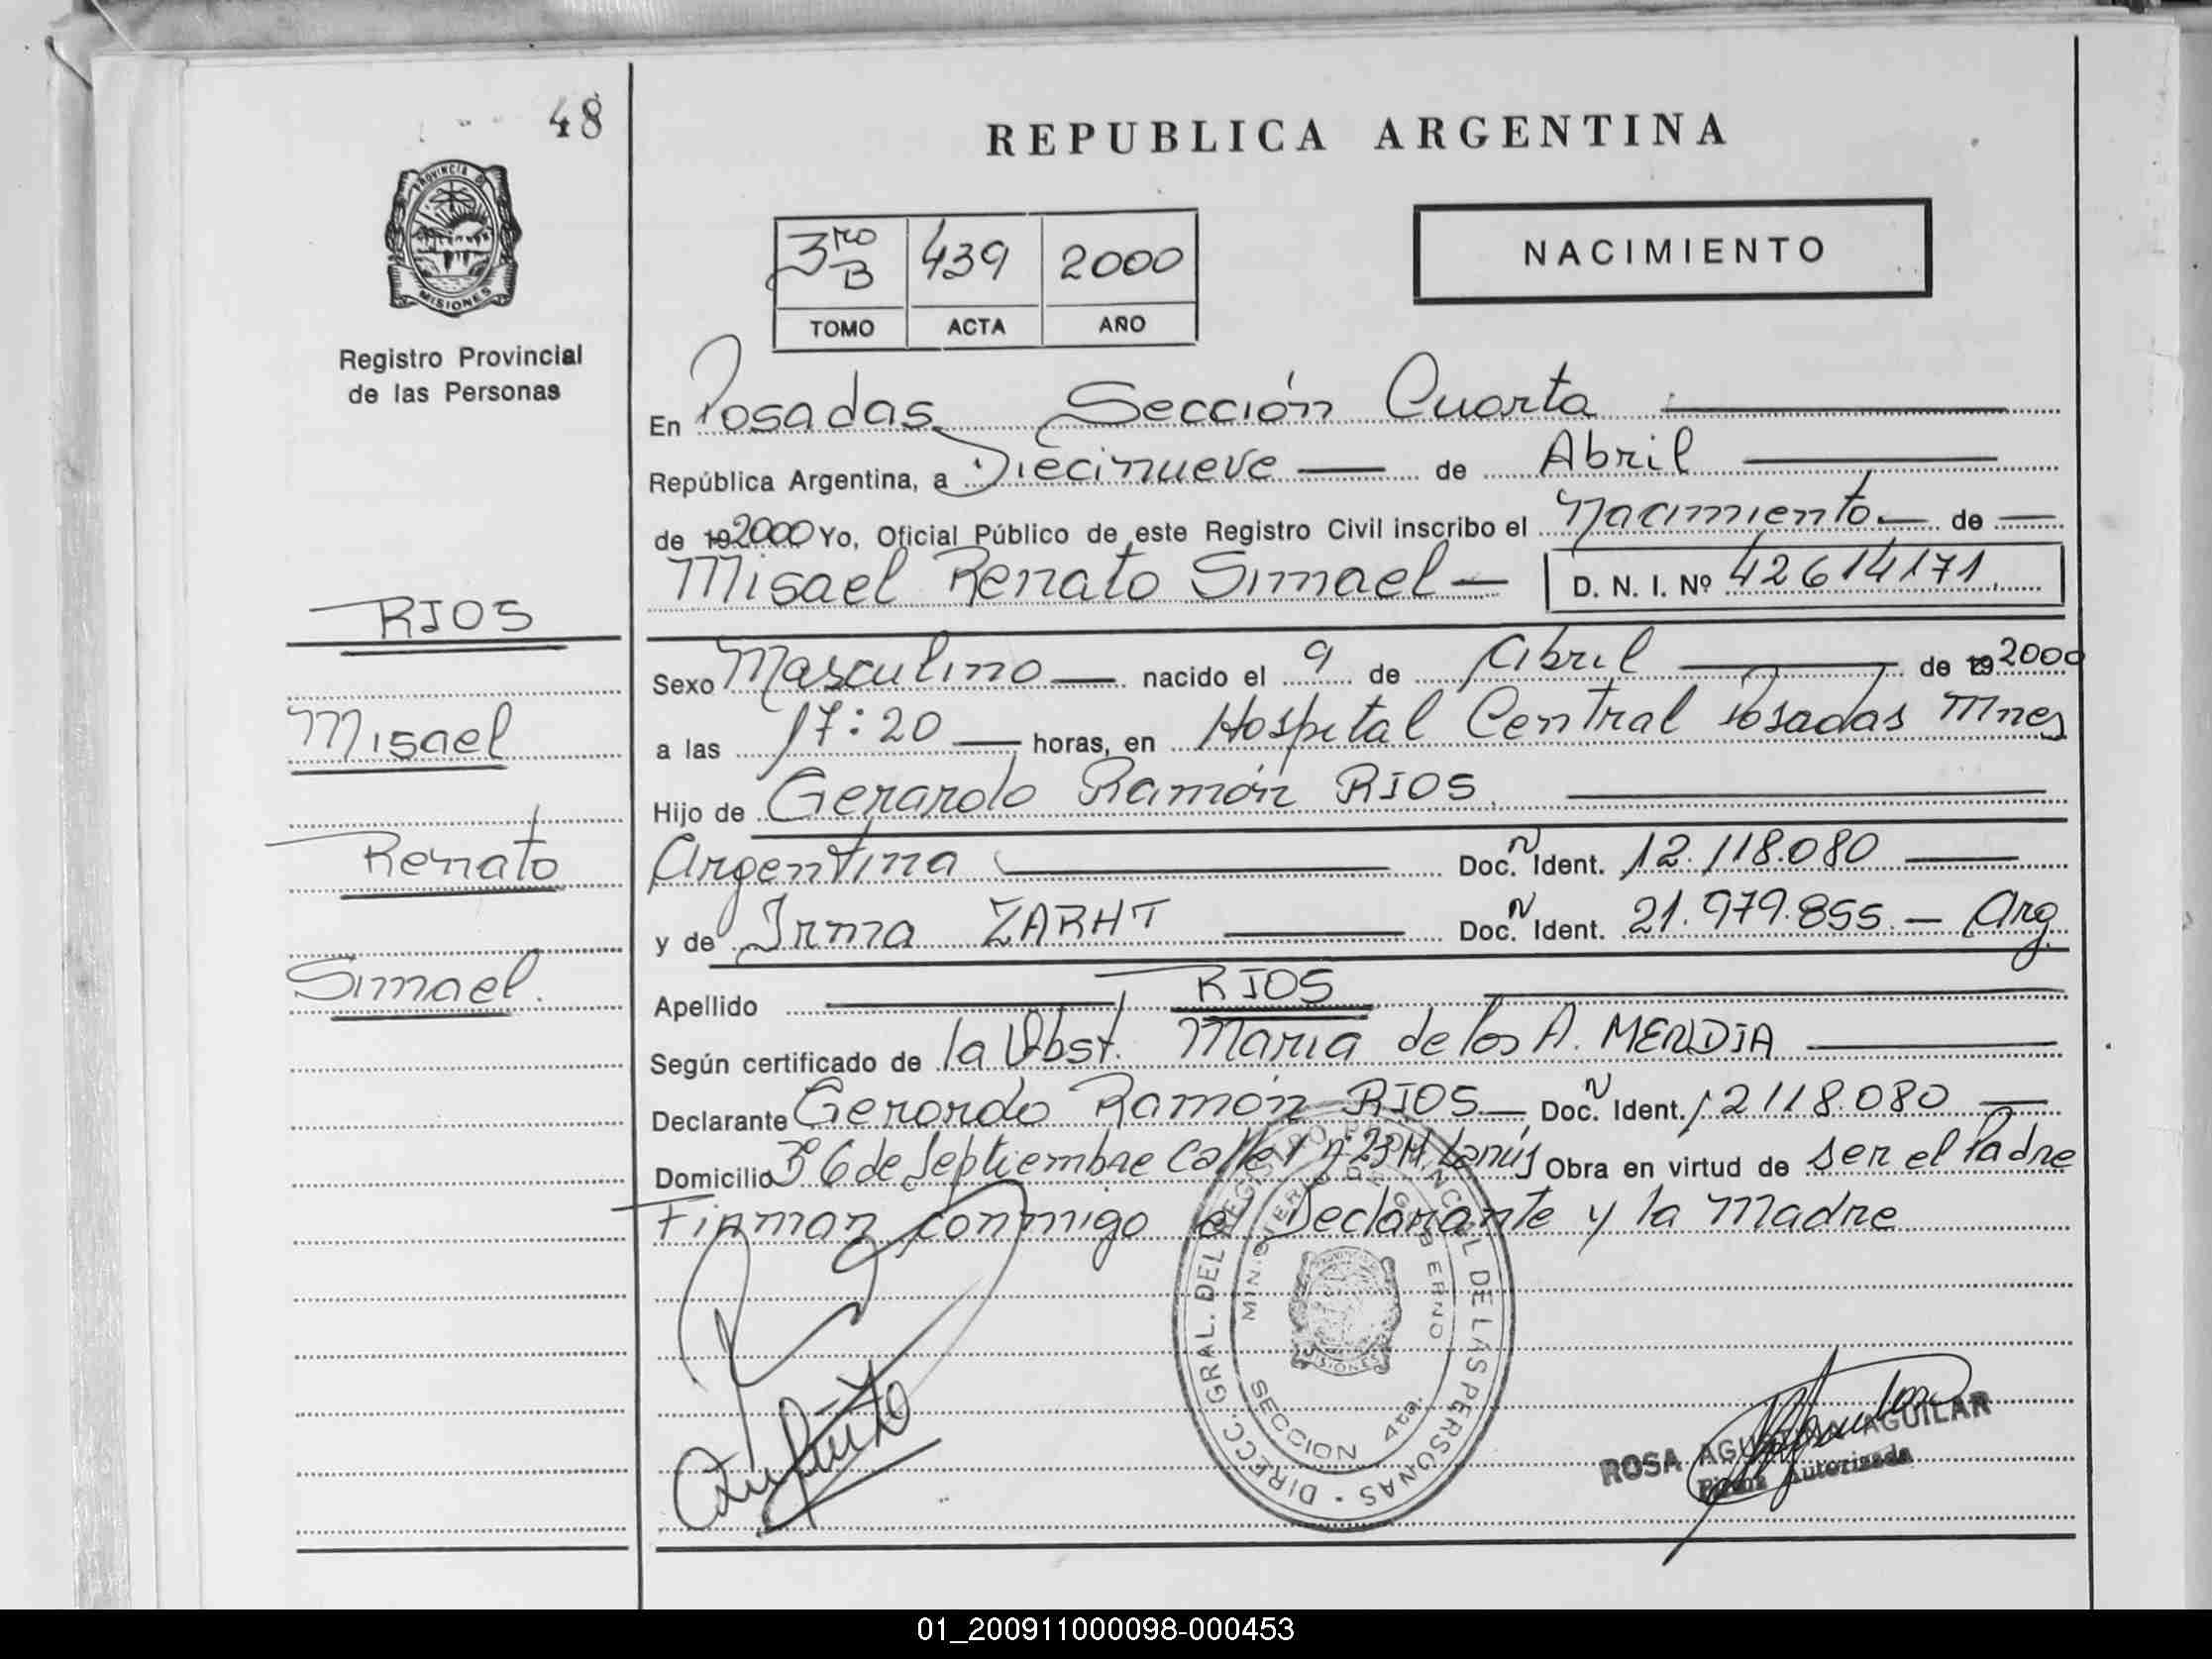 48
PROVINCIA DE
MISIONES
Registro Provincial
de las Personas
RIOS
Misael
Renato
Simael.
REPUBLICA ARGENTINA
3ro B 439 2000
TOMO ACTA AÑO
NACIMIENTO
En Posadas Sección Cuarta
República Argentina, a Diecinueve de Abril
de 192000 Yo, Oficial Público de este Registro Civil inscribo el Nacimiento de
Misael Renato Simael D. N. I. Nº 42614171
Sexo Masculino nacido el 9 de Abril de 192000
a las 17:20 horas, en Hospital Central Posadas Mnes
Hijo de Gerardo Ramón RIOS.
Argentina Doc. N Ident. 12.118.080
y de Irma ZARHT Doc. N Ident. 21.979.855 - Arg.
Apellido RIOS
Según certificado de la Obst. Maria de los A. MENDIA
Declarante Gerardo Ramón RIOS Doc. N Ident. 12118.080
Domicilio Bº 6 de Septiembre Calle 1 nº 23 M. Lanús Obra en virtud de ser el Padre
Firman conmigo el Declarante y la Madre
DIRECC. GRAL. DEL REGISTRO PROVINCIAL DE LAS PERSONAS
MINISTERIO DE GOBIERNO
MISIONES
SECCION 4ta.
ROSA AGUSTINA AGUILAR
Firma Autorizada
01_200911000098-000453